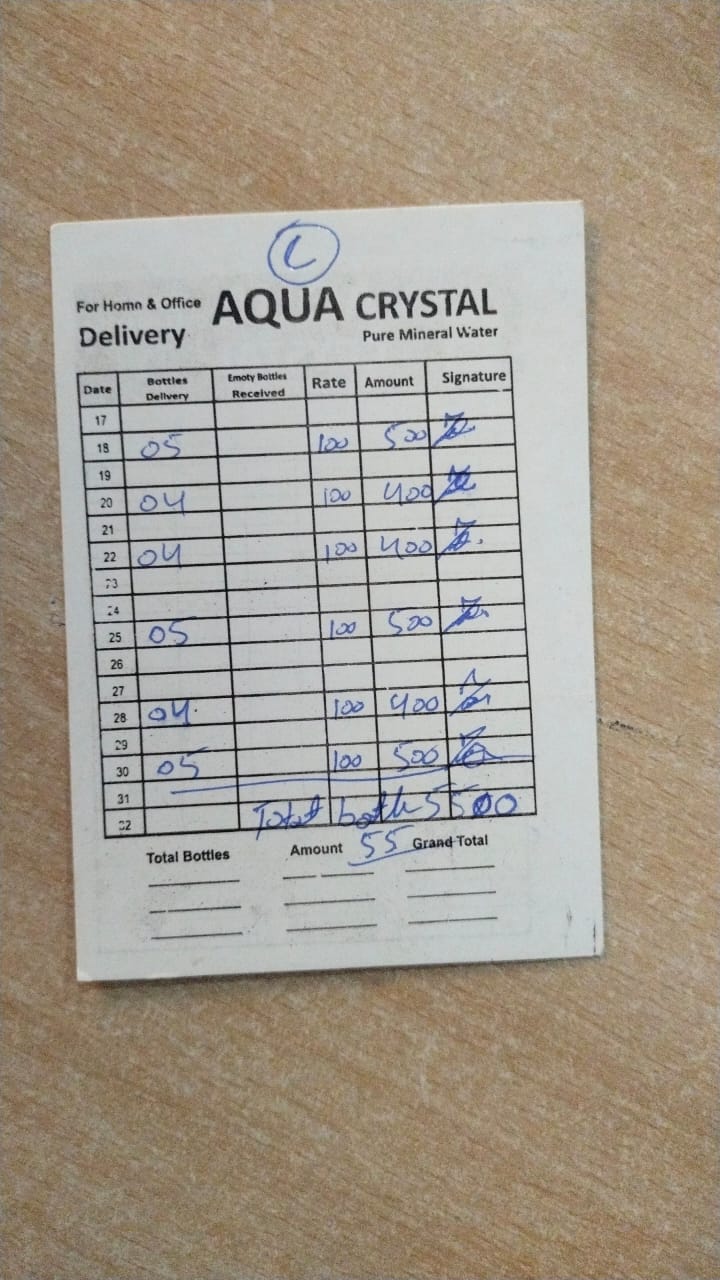 L
For Home & Office AQUA CRYSTAL
Delivery Pure Mineral Water
Date Bottles Delivery Emoty Bottles Received Rate Amount Signature
17
18 05 100 500
19
20 04 100 400
21
22 04 100 400
23
24
25 05 100 500
26
27
28 04 100 400
29
30 05 100 500
31
32 Total bottle 5500
55
Total Bottles Amount Grand Total